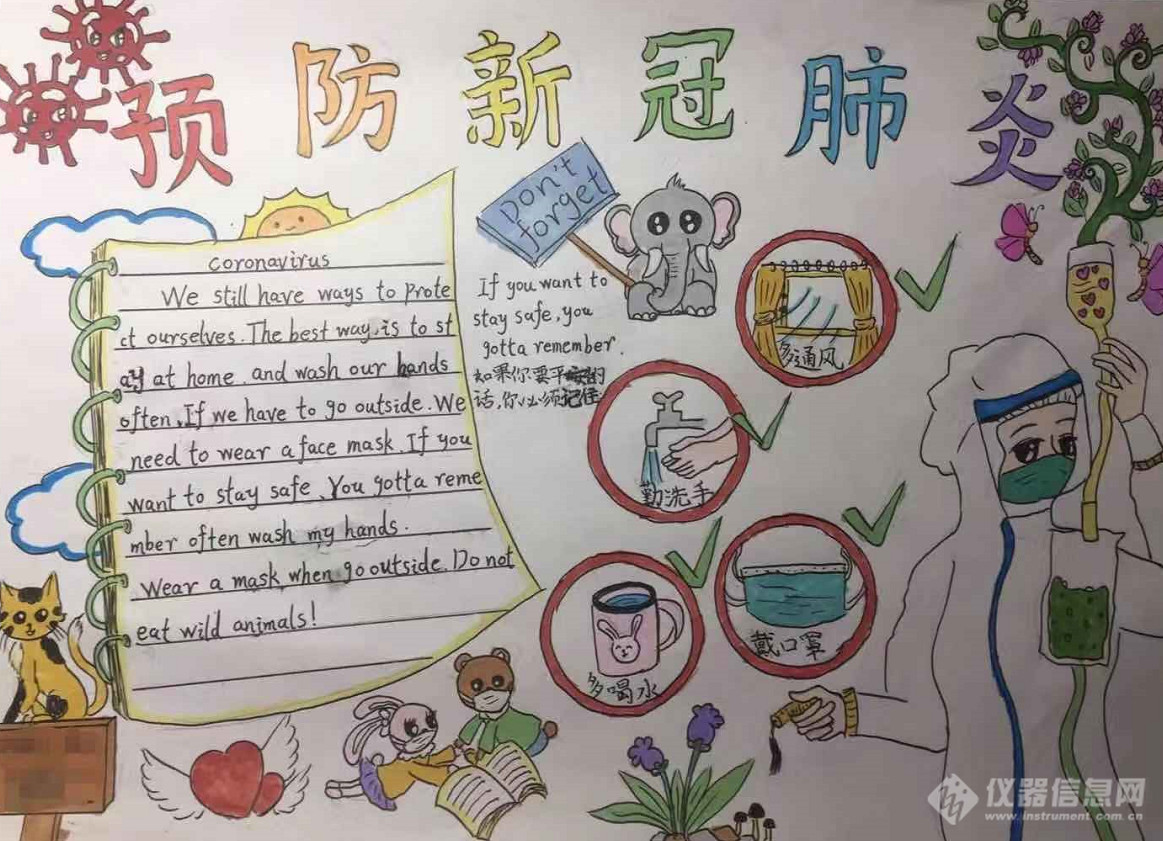 预防新冠肺炎
coronavirus
We still have ways to prote
ct ourselves. The best way, is to st
ay at home. and wash our hands
often. If we have to go outside. We
need to wear a face mask. If you
want to stay safe、You gotta reme
mber often wash my hands.
Wear a mask when go outside. Do not
eat wild animals!
Don't
forget
If you want to
stay safe, you
gotta remember.
如果你要平安的
话,你必须记住
多通风
勤洗手
戴口罩
多喝水
仪器信息网
www.instrument.com.cn